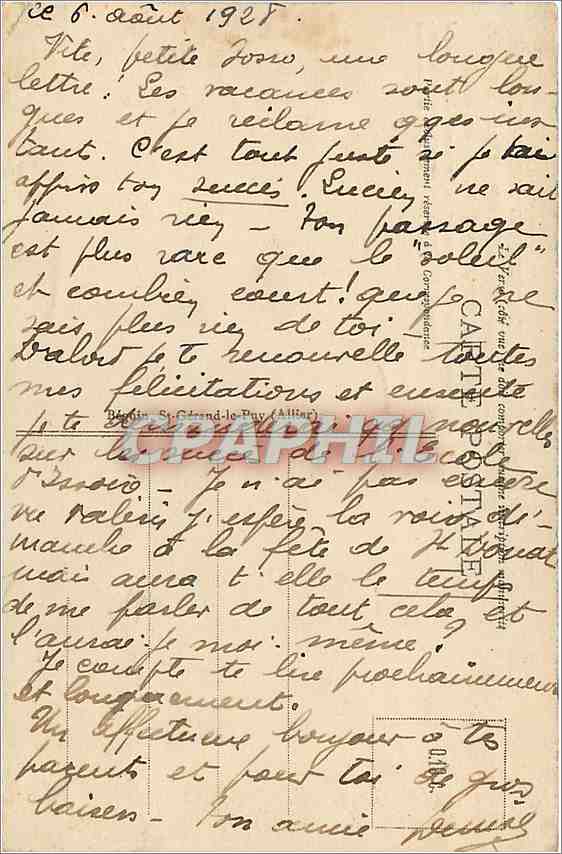 Le 6 août 1928.
Vite, petite Josso, une longue
lettre! Les vacances sont lon-
gues et je réclame qques ins
tant. C'est tout juste si je t'ai
appris ton succès. Lucien ne sait
jamais rien - Ton passage
est plus rare que le "soleil"
et combien court! que je ne
sais plus rien de toi -
D'abord je te renouvelle toutes
mes félicitations et ensuite
je te demanderai qq nouvelles
sur de l'école
d'Issoire - Je n'ai pas encore
vu j'espère la voir di-
manche à la fête de St Donat
mais aura t'elle le temps
de me parler de tout cela, et
l'aurai-je moi-même?
Je compte te lire prochainement
et longuement.
Un affectueux bonjour à tes
parents et pour toi de gros
baisers - Ton amie
CARTE POSTALE
Partie exclusivement réservée à la Correspondance.
Le Verso
Béguin, St-Gérand-le-Puy (Allier)
CPAPHIL